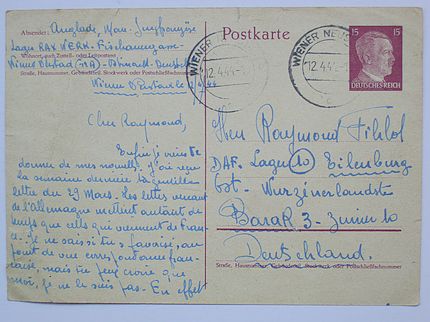 Postkarte
Absender: Anglade,
Lager RAX WERK. Fischauergasse
Wohnort, auch Zustell- oder Leitpostamt
Wiener Neustadt
Straße, Hausnummer, Gebäudeteil, Stockwerk oder Postschließfachnummer
WIENER NEUS
12.4.44
WIENER NEUS
12.4.44
15 15
DEUTSCHES REICH
Cher Raymond,
Enfin je viens te
donner de mes nouvelles. J'ai reçu
la semaine dernière ta gentille
lettre du 29 Mars. Les lettres venant
de l'Allemagne mettent autant de
temps que celles qui viennent de Fran-
ce. Je ne sais si tu es favorisé, au
point de vue correspondance fran-
çaise, mais je peux croire que
moi, je ne le suis pas. En effet
Herr Raymond Filhol
DAF. Lager 10 Eilenburg
Ost - Wurzenerlandstr
Barak 3 - Zimmer 10
Deutschland.
Straße, Hausnummer, Gebäudeteil, Stockwerk oder Postschließfachnummer